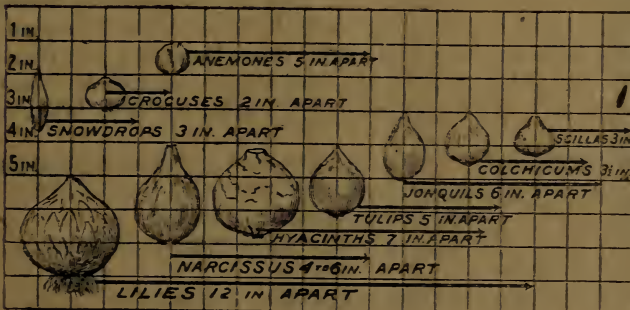 1 IN.
2 IN. ANEMONES 5 IN. APART
3 IN CROCUSES 2 IN APART
4 IN. SNOWDROPS 3 IN. APART
SCILLAS 3 IN
COLCHICUMS 3½ IN.
5 IN. JONQUILS 6 IN. APART
TULIPS 5 IN. APART
HYACINTHS 7 IN. APART
NARCISSUS 4 TO 6 IN. APART
LILIES 12 IN APART